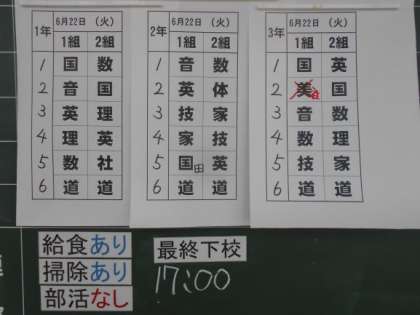 1年 6月22日 (火)
1組 2組
1 国 数
2 音 国
3 英 理
4 理 英
5 数 社
6 道 道
2年 6月22日 (火)
1組 2組
1 音 数
2 英 体
3 技 家
4 家 技
5 国 田 英
6 道 道
3年 6月22日 (火)
1組 2組
1 国 英
2 美 国
3 音 数
4 数 理
5 技 家
6 道 道
給食あり
掃除あり
部活なし
最終下校
17:00